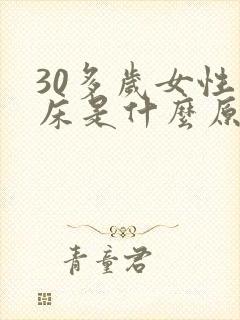 30多歲女性
床是什麼原
青童君